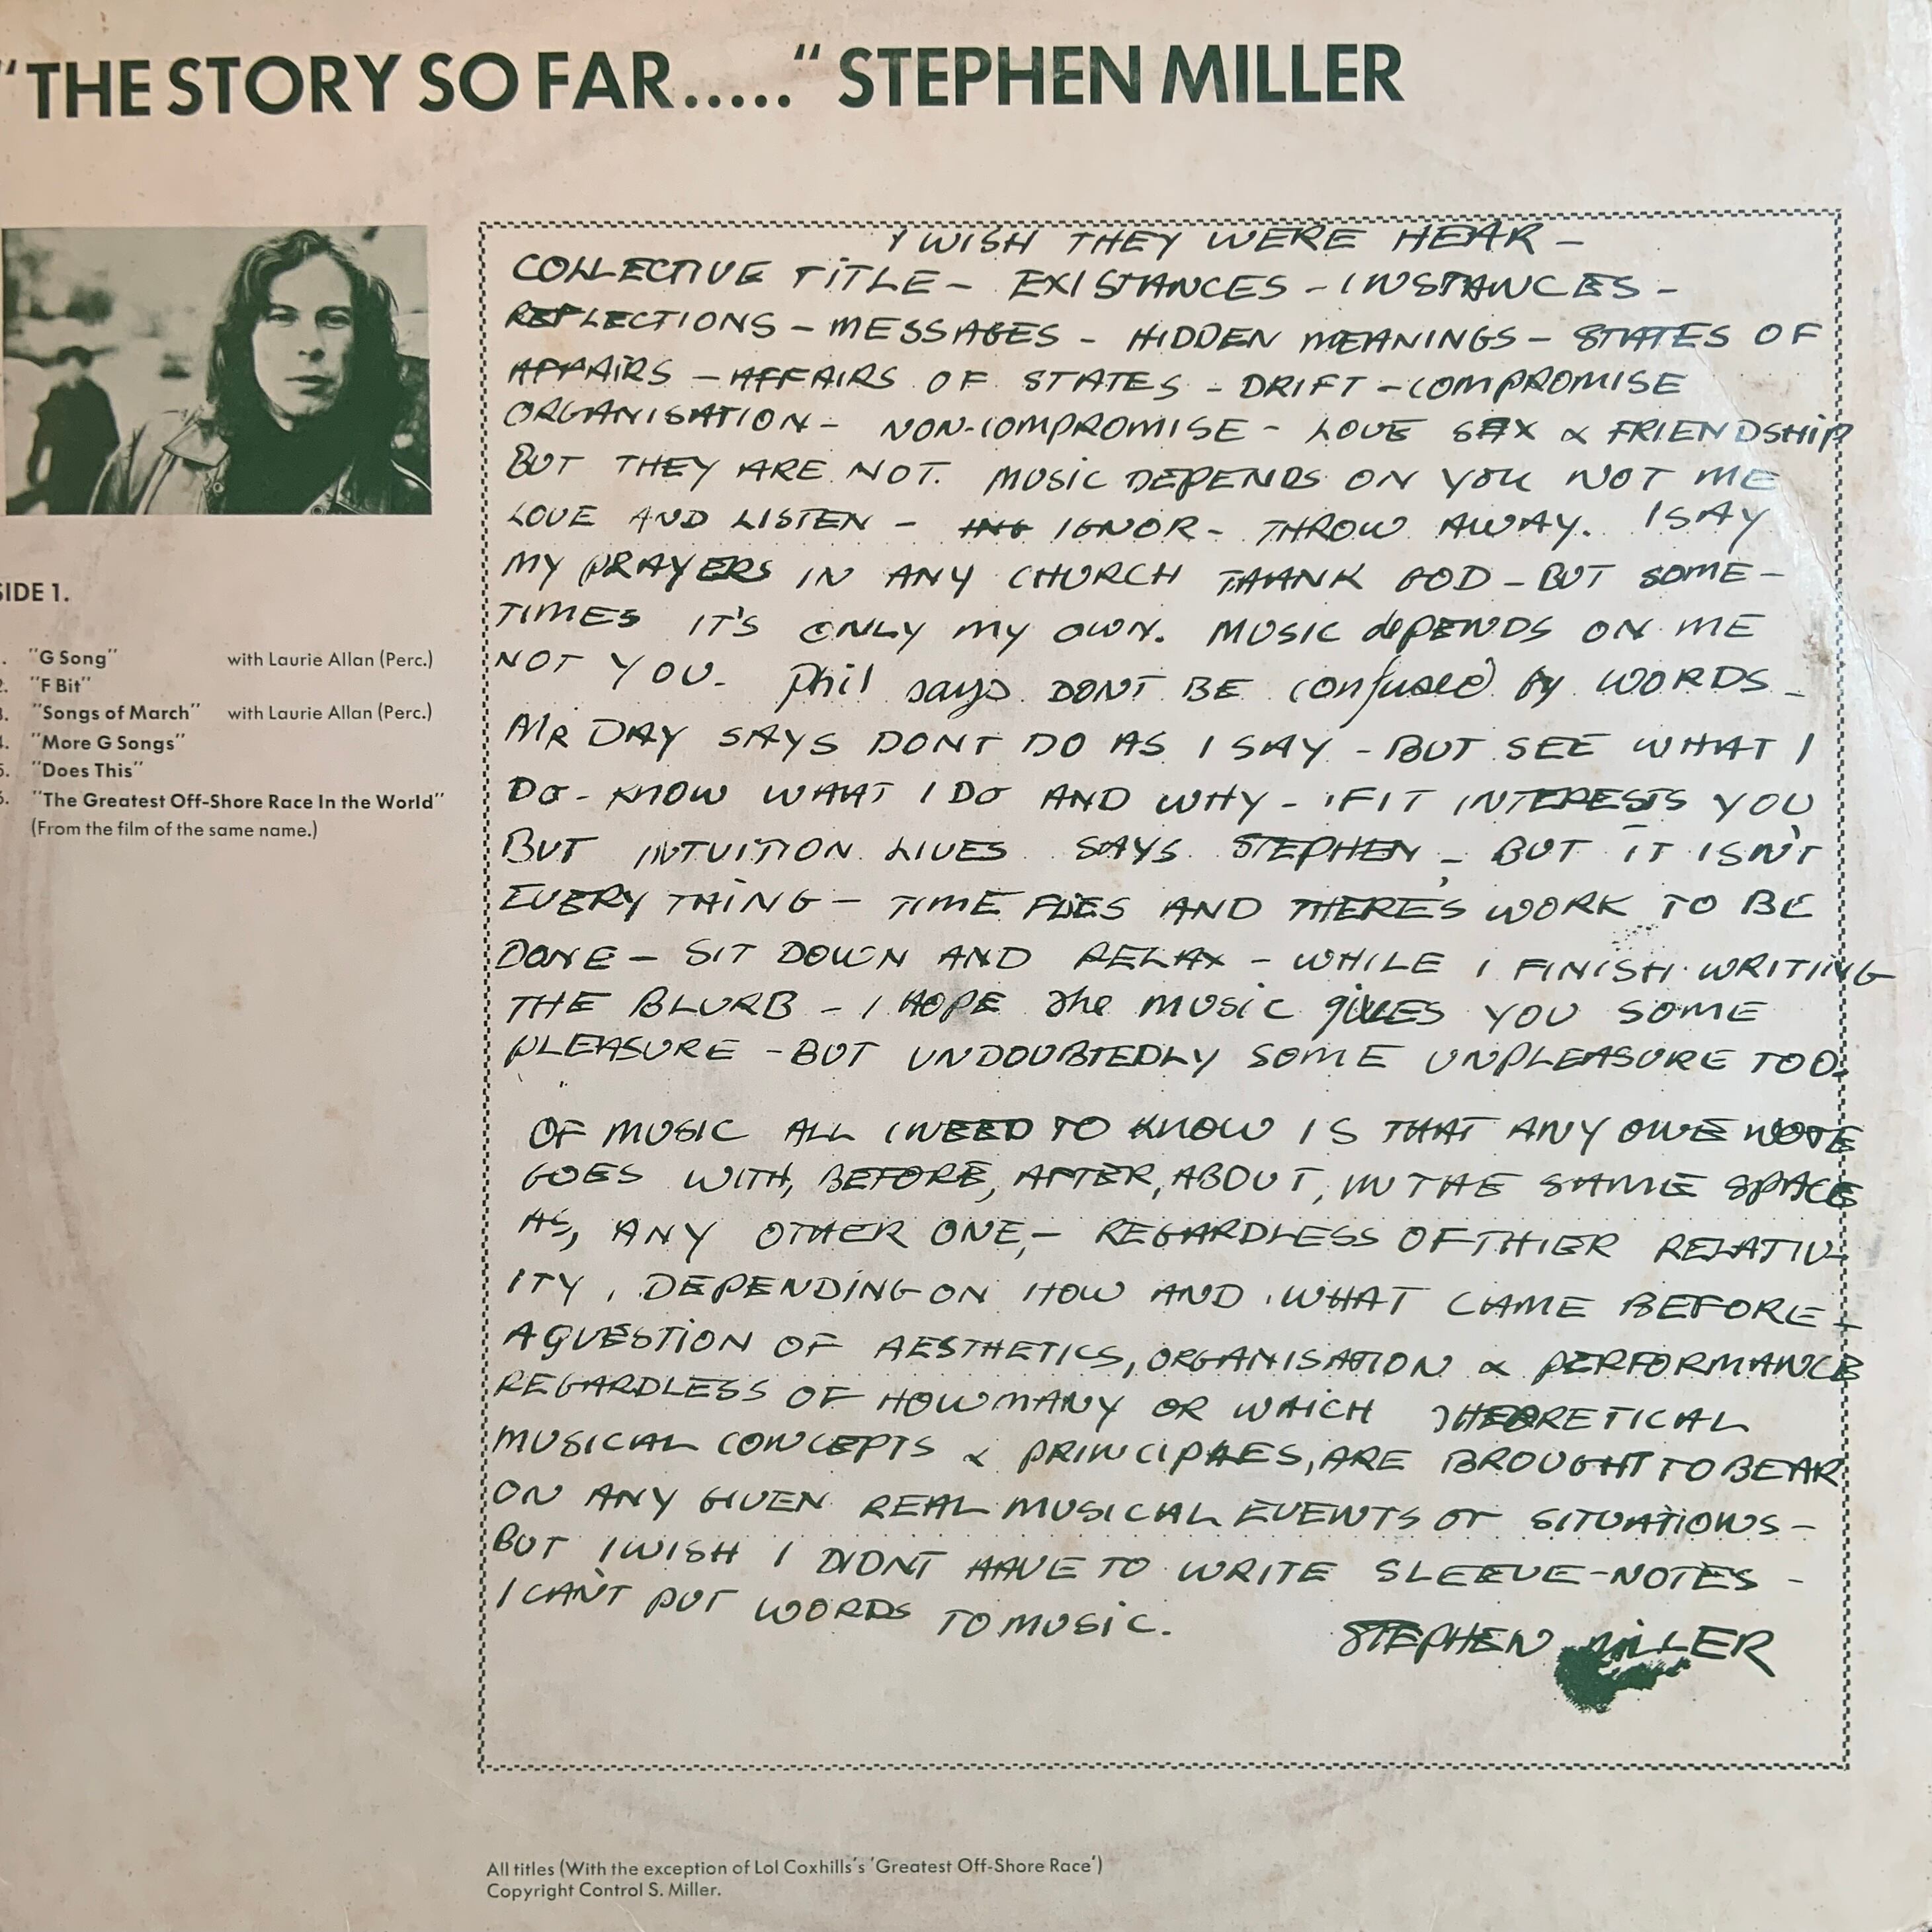 "THE STORY SO FAR....." STEPHEN MILLER
SIDE 1.
"G Song" with Laurie Allan (Perc.)
"F Bit"
"Songs of March" with Laurie Allan (Perc.)
"More G Songs"
"Does This"
"The Greatest Off-Shore Race In the World"
(From the film of the same name.)
I WISH THEY WERE HEAR -
COLLECTIVE TITLE - EXISTANCES - INSTANCES -
REFLECTIONS - MESSAGES - HIDDEN MEANINGS - STATES OF
AFFAIRS - AFFAIRS OF STATES - DRIFT - COMPROMISE
ORGANISATION - NON-COMPROMISE - LOVE SEX & FRIENDSHIP
BUT THEY ARE NOT. MUSIC DEPENDS ON YOU NOT ME
LOVE AND LISTEN - ING IGNOR - THROW AWAY. I SAY
MY PRAYERS IN ANY CHURCH THANK GOD - BUT SOME-
TIMES IT'S ONLY MY OWN. MUSIC dePENDS ON ME
NOT YOU. Phil says DONT BE confused by WORDS -
MR DAY SAYS DONT DO AS I SAY - BUT SEE WHAT I
DO - KNOW WHAT I DO AND WHY - IF IT INTERESTS YOU
BUT INTUITION LIVES SAYS STEPHEN - BUT IT ISN'T
EVERY THING - TIME FLIES AND THERE'S WORK TO BE
DONE - SIT DOWN AND RELAX - WHILE I FINISH WRITING
THE BLURB - I HOPE the MUSIC gIVES YOU SOME
PLEASURE - BUT UNDOUBTEDLY SOME UNPLEASURE TOO.
OF MUSIC ALL I NEED TO KNOW IS THAT ANY ONE NOTE
GOES WITH, BEFORE, AFTER, ABOUT, IN THE SAME SPACE
AS, ANY OTHER ONE, - REGARDLESS OF THIER RELATIV-
ITY, DEPENDING ON HOW AND WHAT CAME BEFORE -
A QUESTION OF AESTHETICS, ORGANISATION & PERFORMANCE
REGARDLESS OF HOW MANY OR WHICH THEORETICAL
MUSICAL CONCEPTS & PRINCIPLES, ARE BROUGHT TO BEAR
ON ANY GIVEN REAL MUSICAL EVENTS OR SITUATIONS -
BUT I WISH I DIDNT HAVE TO WRITE SLEEVE-NOTES -
I CAN'T PUT WORDS TO MUSIC.
STEPHEN MILLER
All titles (With the exception of Lol Coxhills's 'Greatest Off-Shore Race')
Copyright Control S. Miller.